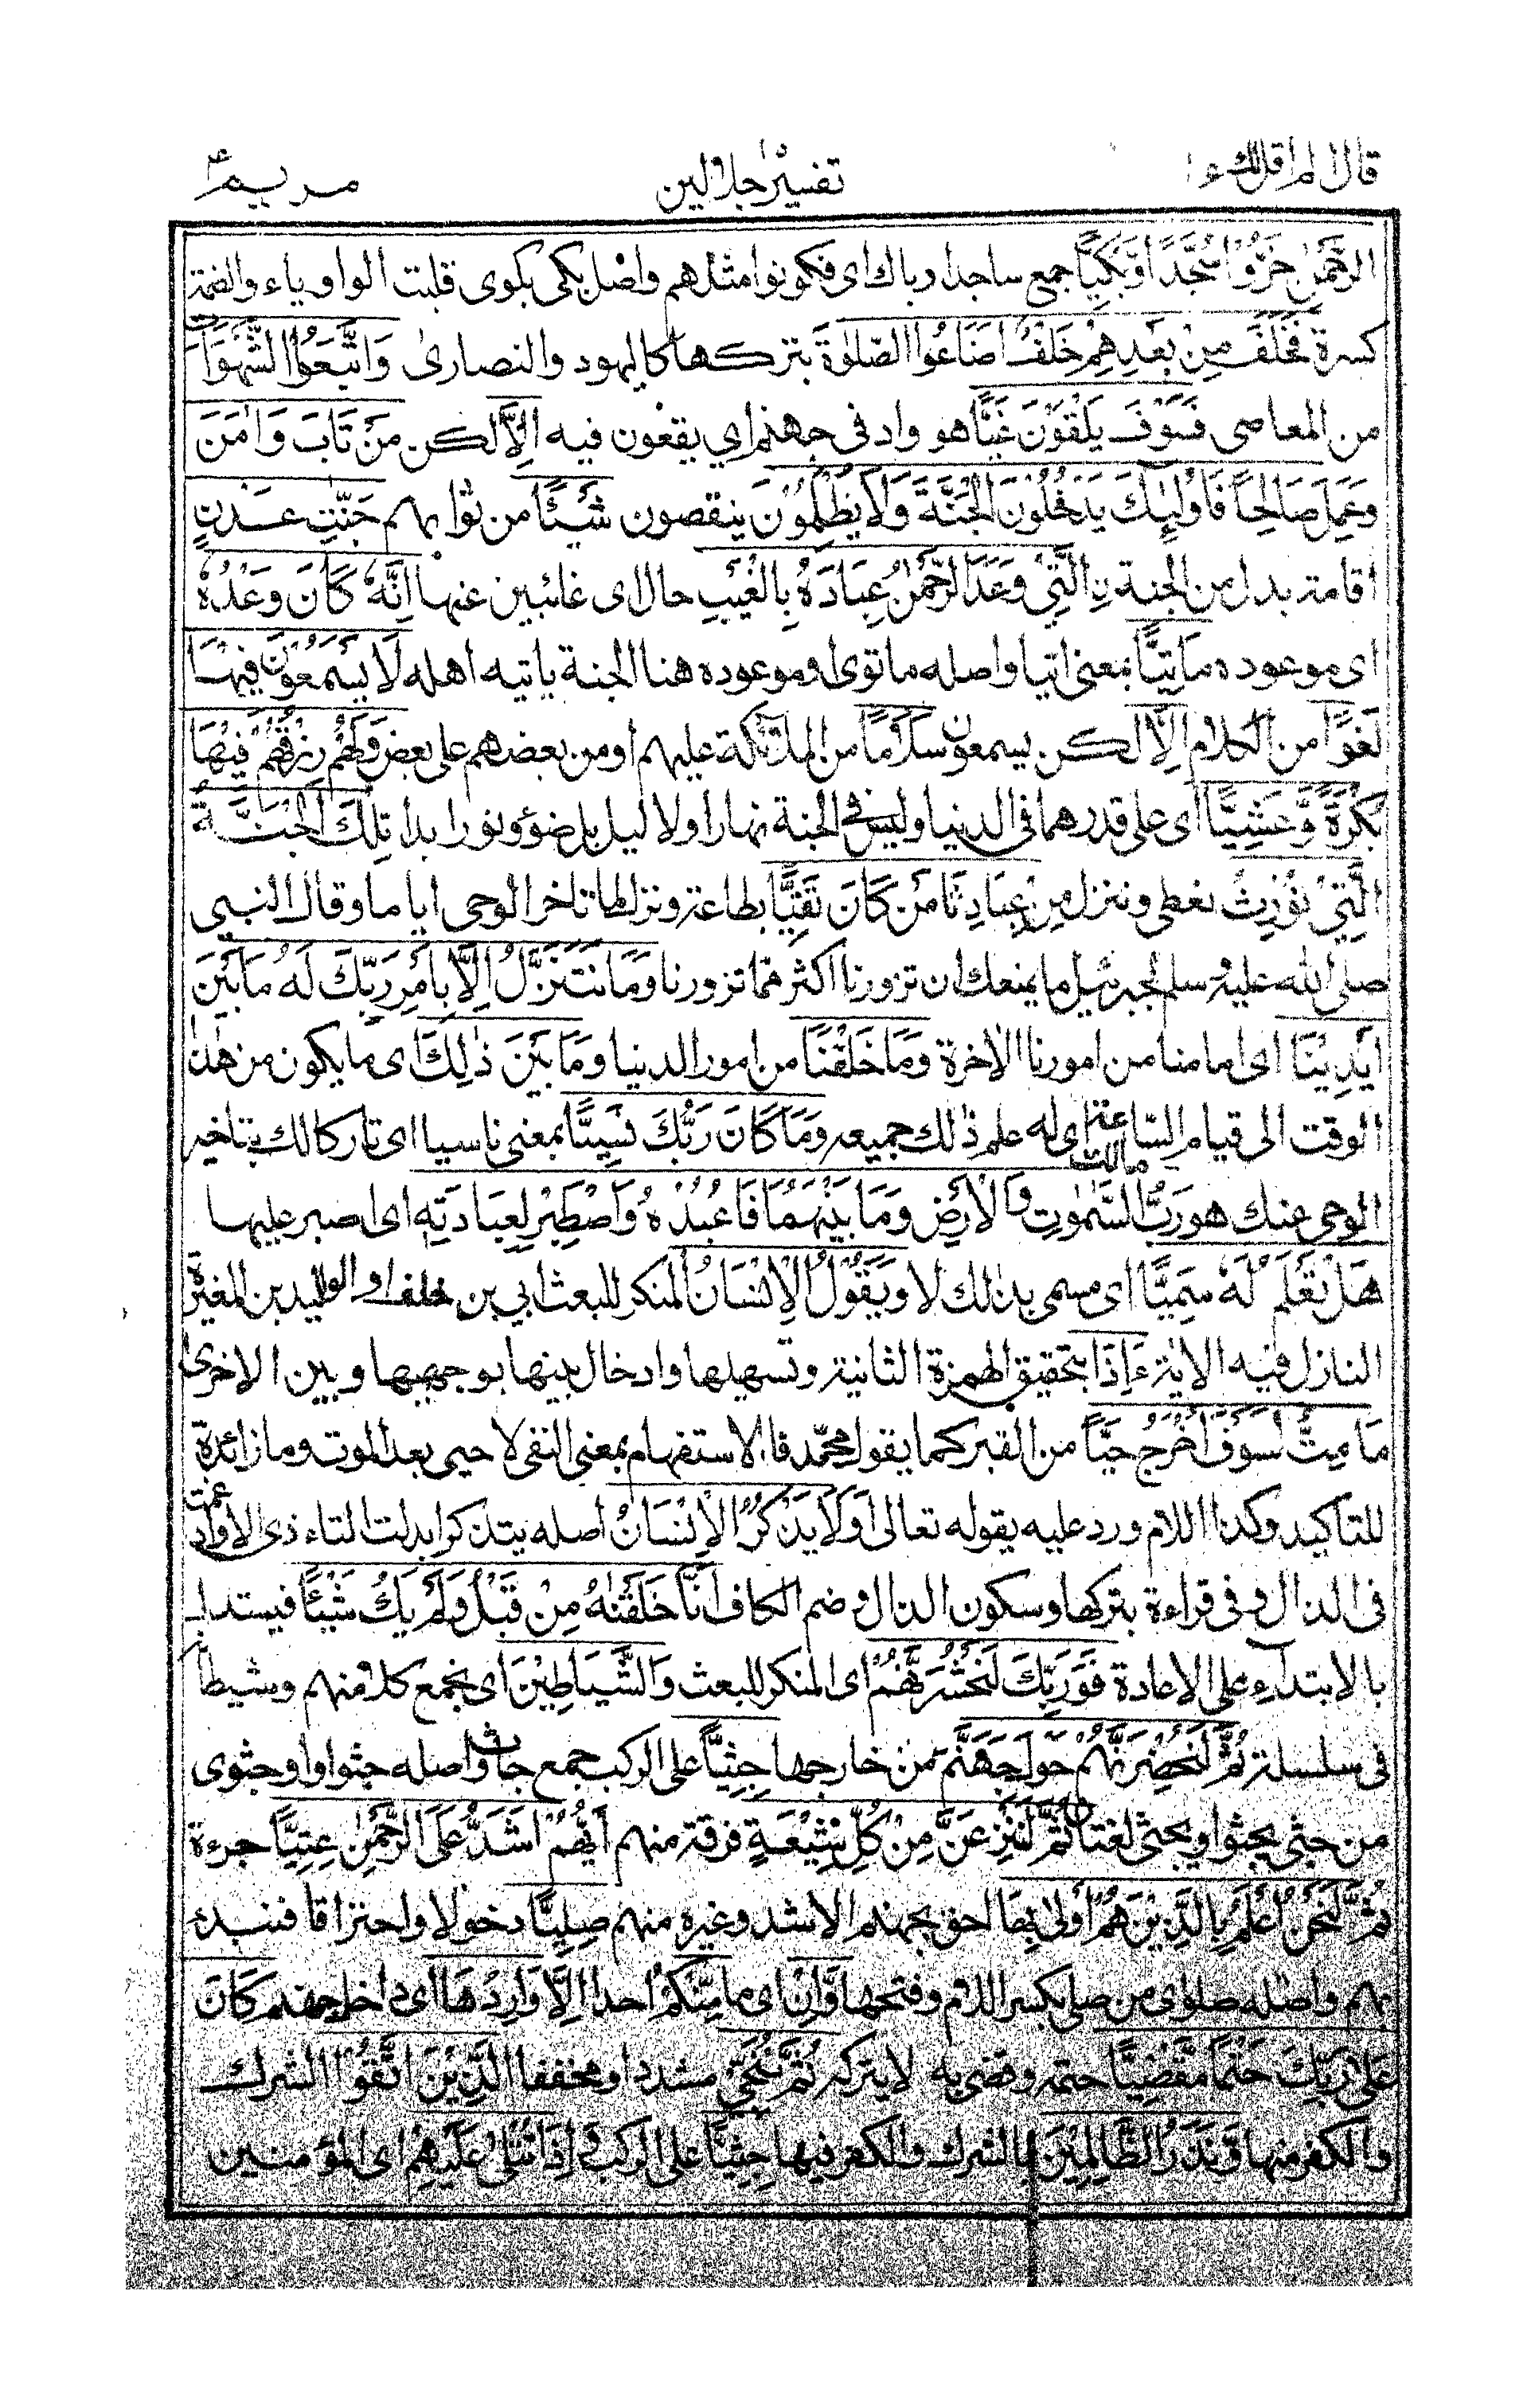 قال الم اقل لك
تفسير جلالين
مريم
الرَّحْمٰنِ خَرُّوْا سُجَّدًا وَّبُكِيًّا جمع ساجد وباك اى فكونوا مثلهم واصل بكى بكوى قلبت الواو ياء والضمة
كسرة فَخَلَفَ مِنْ بَعْدِهِمْ خَلْفٌ اَضَاعُوا الصَّلٰوةَ بتركها كاليهود والنصارىٰ وَاتَّبَعُوا الشَّهَوَاتِ
من المعاصى فَسَوْفَ يَلْقَوْنَ غَيًّا هو واد فى جهنم اي يقعون فيه اِلَّا لكن مَنْ تَابَ وَاٰمَنَ
وَعَمِلَ صَالِحًا فَاُولٰٓئِكَ يَدْخُلُوْنَ الْجَنَّةَ وَلَا يُظْلَمُوْنَ ينقصون شَيْـًٔا من ثوابهم جَنّٰتِ عَدْنٍ
اقامة بدل من الجنة نِ الَّتِيْ وَعَدَ الرَّحْمٰنُ عِبَادَهٗ بِالْغَيْبِ حال اى غائبين عنها اِنَّهٗ كَانَ وَعْدُهٗ
اى موعوده مَاْتِيًّا بمعنى اتيا واصله ماتوى او موعوده هنا الجنة ياتيه اهله لَا يَسْمَعُوْنَ فِيْهَا
لَغْوًا من الكلام اِلَّا لكن يسمعون سَلَامًا من الملٰئكة عليهم او من بعضهم على بعض وَلَهُمْ رِزْقُهُمْ فِيْهَا
بُكْرَةً وَّعَشِيًّا اى على قدرهما فى الدنيا وليس فى الجنة نهار ولا ليل بل ضوؤ ونور ابدا تِلْكَ الْجَنَّةُ
الَّتِيْ نُوْرِثُ نعطى وننزل مِنْ عِبَادِنَا مَنْ كَانَ تَقِيًّا بطاعته ونزل لما تاخر الوحى اياما وقال النبى
صلى الله عليه وسلم لجبرئيل ما يمنعك ان تزورنا اكثر مما تزورنا وَمَا نَتَنَزَّلُ اِلَّا بِاَمْرِ رَبِّكَ لَهٗ مَا بَيْنَ
اَيْدِيْنَا اى امامنا من امورنا الاخرة وَمَا خَلْفَنَا من امور الدنيا وَمَا بَيْنَ ذٰلِكَ اى ما يكون من هذا
الوقت الى قيام الساعة اى له علم ذلك جميعه وَمَا كَانَ رَبُّكَ نَسِيًّا بمعنى ناسيا اى تاركا لك بتاخير
الوحى عنك هو رَبُّ مالك السَّمٰوٰتِ وَالْاَرْضِ وَمَا بَيْنَهُمَا فَاعْبُدْهُ وَاصْطَبِرْ لِعِبَادَتِهٖ اى اصبر عليها
هَلْ تَعْلَمُ لَهٗ سَمِيًّا اى مسمى بذلك لا وَيَقُوْلُ الْاِنْسَانُ المنكر للبعث ابي بن خلف او الوليد بن المغيرة
النازل فيه الاية ءَاِذَا بتحقيق الهمزة الثانية وتسهيلها وادخال بينها بوجهيها وبين الاخرى
مَا مِتُّ لَسَوْفَ اُخْرَجُ حَيًّا من القبر كما يقول محمد فالاستفهام بمعنى النفى لا حيى بعد الموت وما زائدة
للتاكيد وكذا اللام ورد عليه بقوله تعالى اَوَلَا يَذَّكَّرُ الْاِنْسَانُ اصله يتذكر ابدلت التاء ذالا وادغمت
فى الذال وفى قراءة بتركها وسكون الذال وضم الكاف اَنَّا خَلَقْنٰهُ مِنْ قَبْلُ وَلَمْ يَكُ شَيْئًا فيستدل
بالابتداء على الاعادة فَوَرَبِّكَ لَنَحْشُرَنَّهُمْ اى المنكر للبعث وَالشَّيَاطِيْنَ اى نجمع كلا منهم وشيطانه
فى سلسلة ثُمَّ لَنُحْضِرَنَّهُمْ حَوْلَ جَهَنَّمَ من خارجها جِثِيًّا على الركب جمع جاث واصله جثووا وجثوى
من جثى يجثوا ويجثى لغتان ثُمَّ لَنَنْزِعَنَّ مِنْ كُلِّ شِيْعَةٍ فرقة منهم اَيُّهُمْ اَشَدُّ عَلَى الرَّحْمٰنِ عِتِيًّا جرءة
ثُمَّ لَنَحْنُ اَعْلَمُ بِالَّذِيْنَ هُمْ اَوْلٰى بِهَا احق بجهنم الاشد وغيره منهم صِلِيًّا دخولا واحتراقا فنبدء
بهم واصله صلوى من صلى بكسر اللام وفتحها وَاِنْ اى ما مِّنْكُمْ احدا اِلَّا وَارِدُهَا اى داخل جهنم كَانَ
عَلٰى رَبِّكَ حَتْمًا مَّقْضِيًّا حتمه وقضى به لا يتركه ثُمَّ نُنَجِّى مشددا ومخففا الَّذِيْنَ اتَّقَوْا الشرك
والكفر منها وَّنَذَرُ الظَّالِمِيْنَ بالشرك والكفر فيها جِثِيًّا على الركب وَاِذَا تُتْلٰى عَلَيْهِمْ اى المؤمنين